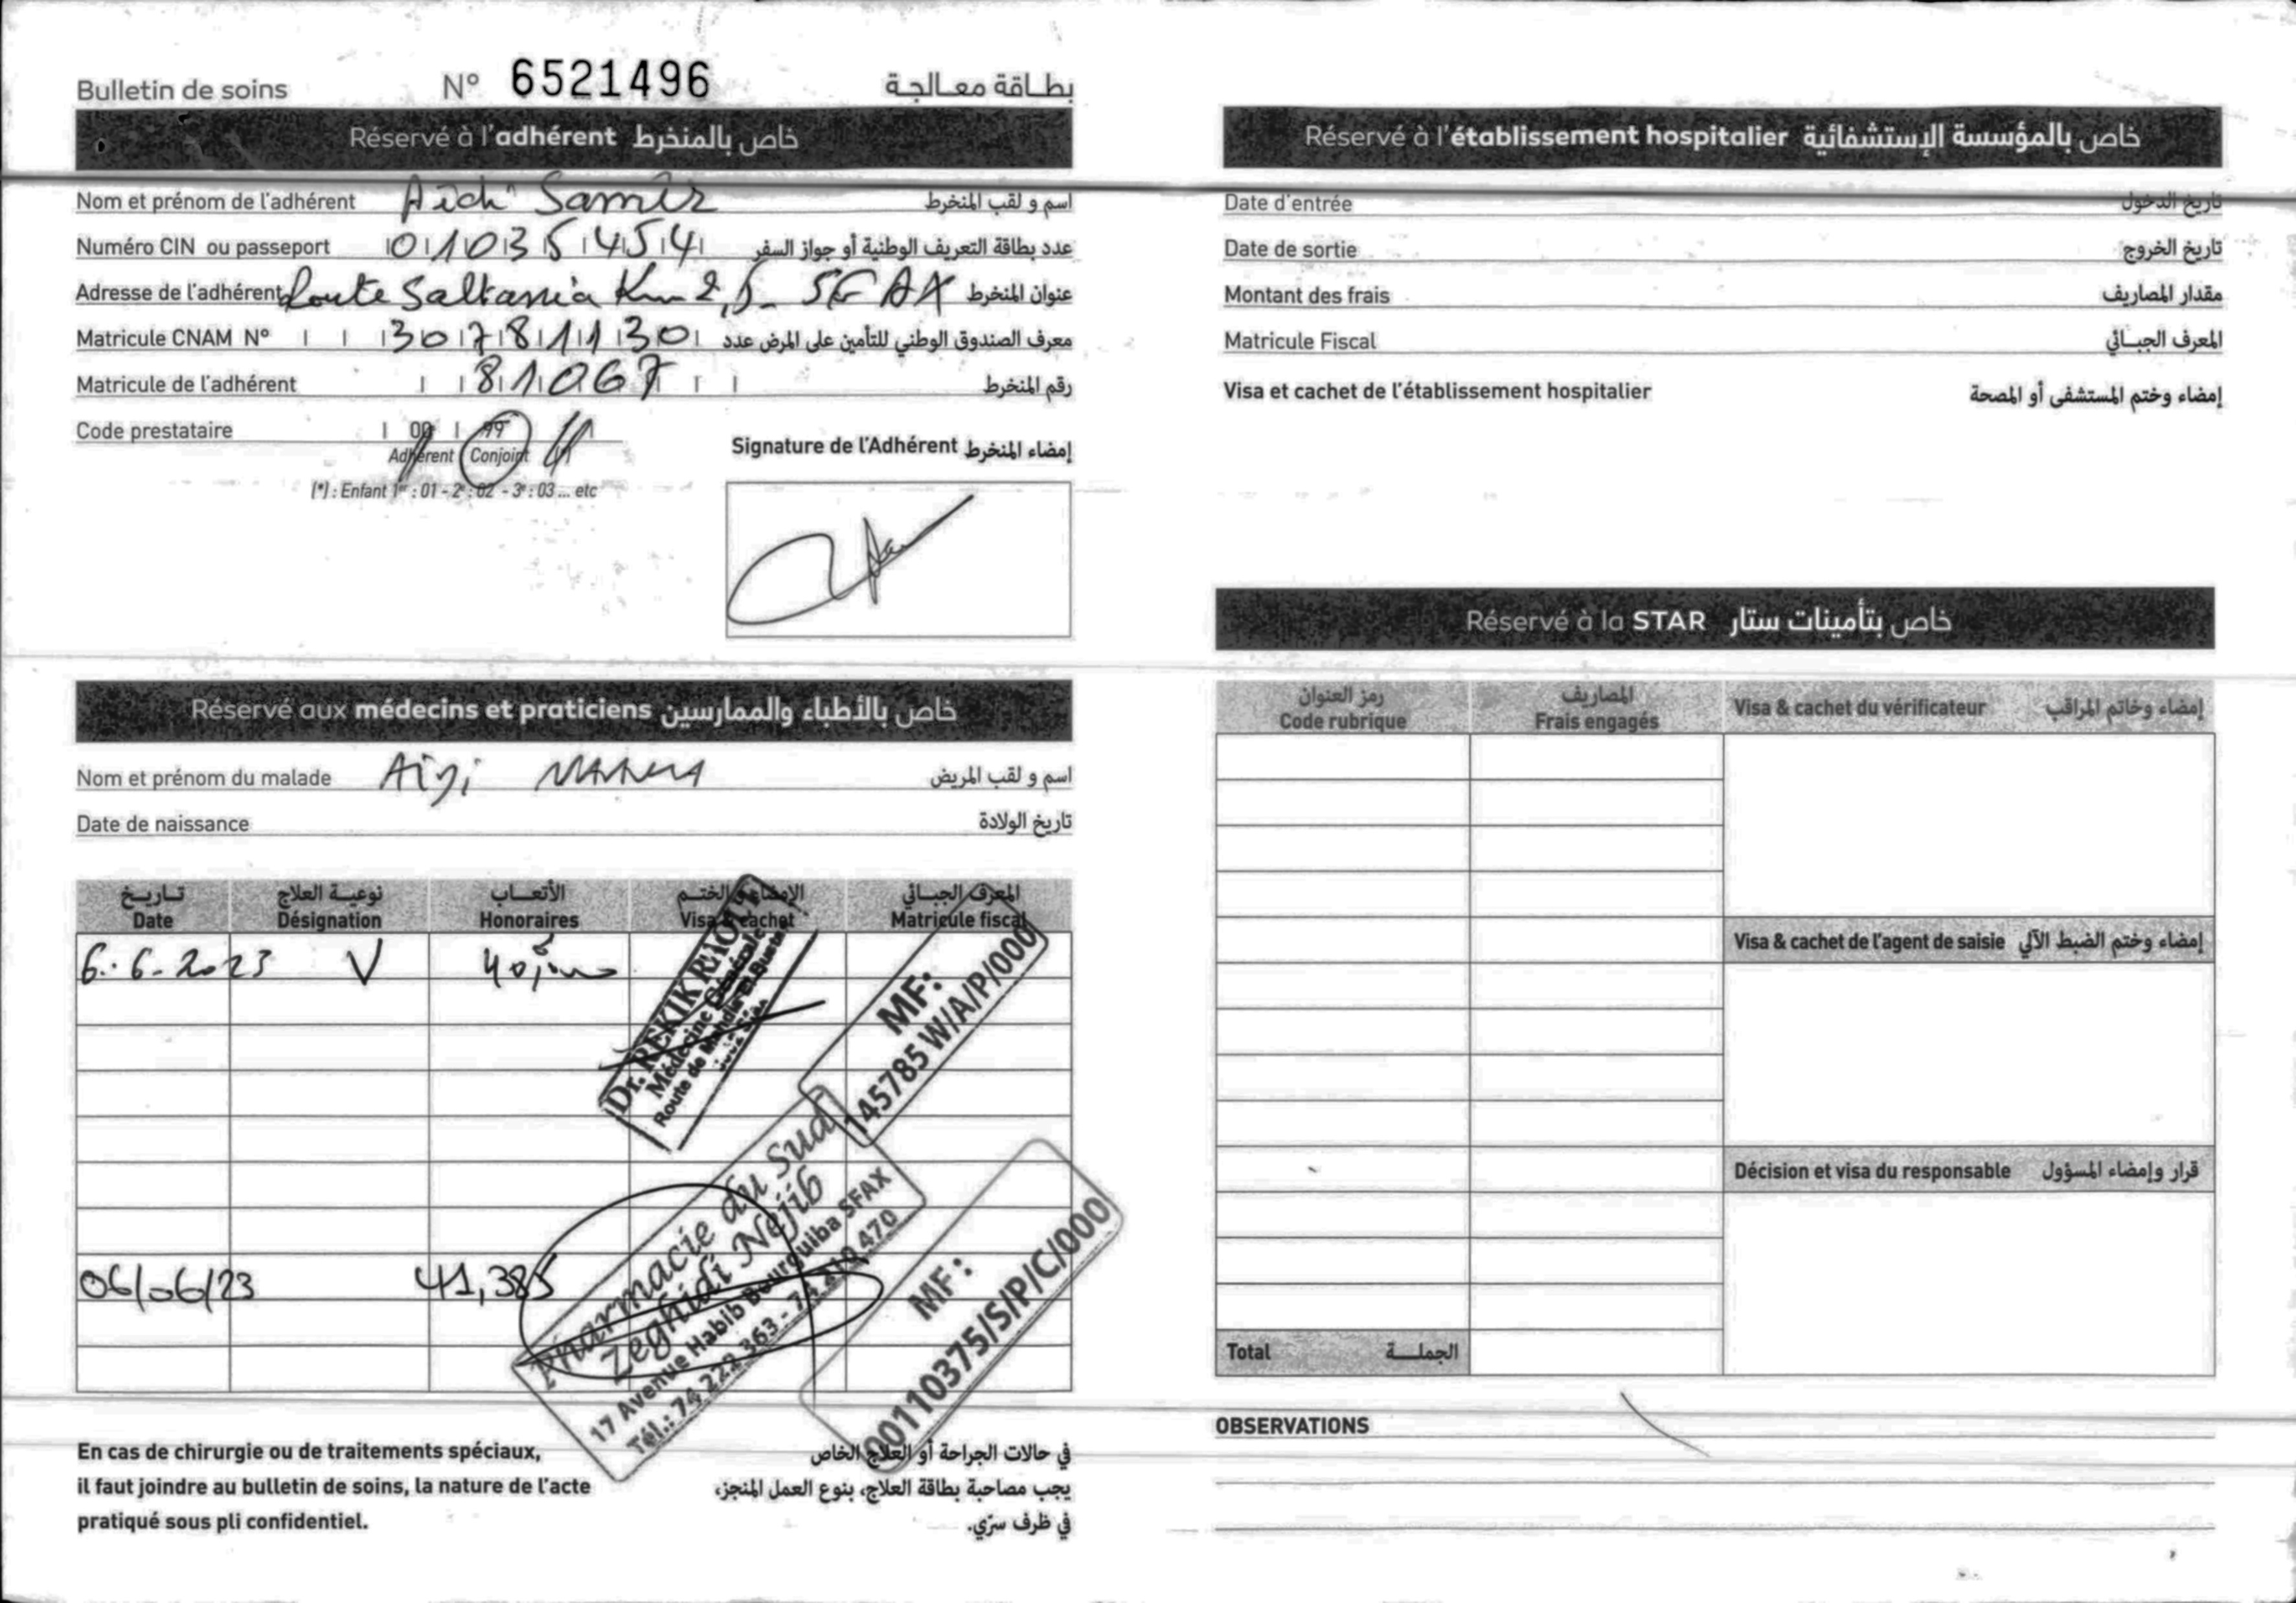 Bulletin de soins N° 6521496 بطاقة معالجة
Réservé à l'adhérent خاص بالمنخرط
Nom et prénom de l'adhérent Aidi Samir اسم و لقب المنخرط
Numéro CIN ou passeport 01035454 عدد بطاقة التعريف الوطنية أو جواز السفر
Adresse de l'adhérent Route Saltania Km 2,5 - SFAX عنوان المنخرط
Matricule CNAM N° 307811130 معرف الصندوق الوطني للتأمين على المرض عدد
Matricule de l'adhérent 81067 رقم المنخرط
Code prestataire 00 99
Adhérent Conjoint
Signature de l'Adhérent إمضاء المنخرط
(*) : Enfant 1er : 01 - 2e : 02 - 3e : 03 ... etc
Réservé aux médecins et praticiens خاص بالأطباء والممارسين
Nom et prénom du malade Aidi اسم و لقب المريض
Date de naissance تاريخ الولادة
تاريخ نوعية العلاج الأتعاب الإمضاء و الختم المعرف الجبائي
Date Désignation Honoraires Visa & cachet Matricule fiscal
6.6.2023 V
Dr. REKIK RAOUF
Médecine Générale
MF:
145785 W/A/P/000
06/06/23 41,385
Pharmacie du Sud
Zeghidi Nejib
17 Avenue Habib Bourguiba SFAX
Tél.: 74 222 363 - 74 210 470
MF :
00110375/S/P/C/000
En cas de chirurgie ou de traitements spéciaux,
il faut joindre au bulletin de soins, la nature de l'acte
pratiqué sous pli confidentiel.
في حالات الجراحة أو العلاج الخاص
يجب مصاحبة بطاقة العلاج، بنوع العمل المنجز،
في ظرف سرّي.
Réservé à l'établissement hospitalier خاص بالمؤسسة الإستشفائية
Date d'entrée تاريخ الدخول
Date de sortie تاريخ الخروج
Montant des frais مقدار المصاريف
Matricule Fiscal المعرف الجبائي
Visa et cachet de l'établissement hospitalier إمضاء وختم المستشفى أو المصحة
Réservé à la STAR خاص بتأمينات ستار
رمز العنوان المصاريف
Code rubrique Frais engagés Visa & cachet du vérificateur إمضاء وخاتم المراقب
Visa & cachet de l'agent de saisie إمضاء وختم الضبط الآلي
Décision et visa du responsable قرار وإمضاء المسؤول
Total الجملة
OBSERVATIONS